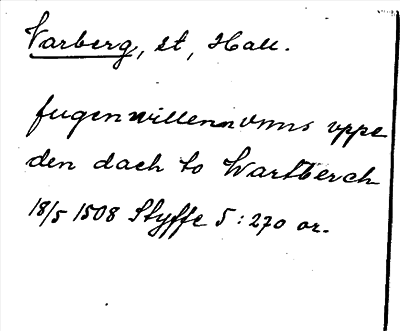 Varberg, st, Hall.
fugenwillenn vnns vppe
den dach to Wartberch
18/5 1508 Styffe 5:270 or.